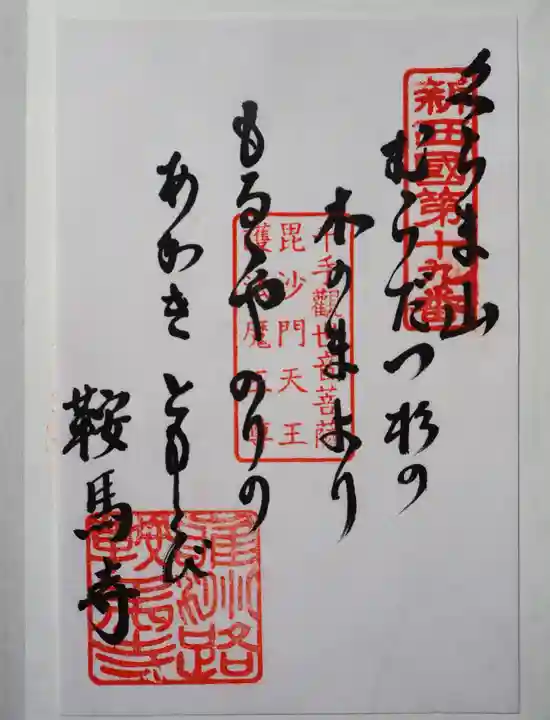 くらま山
むらだつ杉の
木のまより
もるゝや のりの
あかき ともしび
鞍馬寺
新西國第十九番
千手觀世音菩薩
毘沙門天王
護法魔王尊
雍州路
鞍馬寺